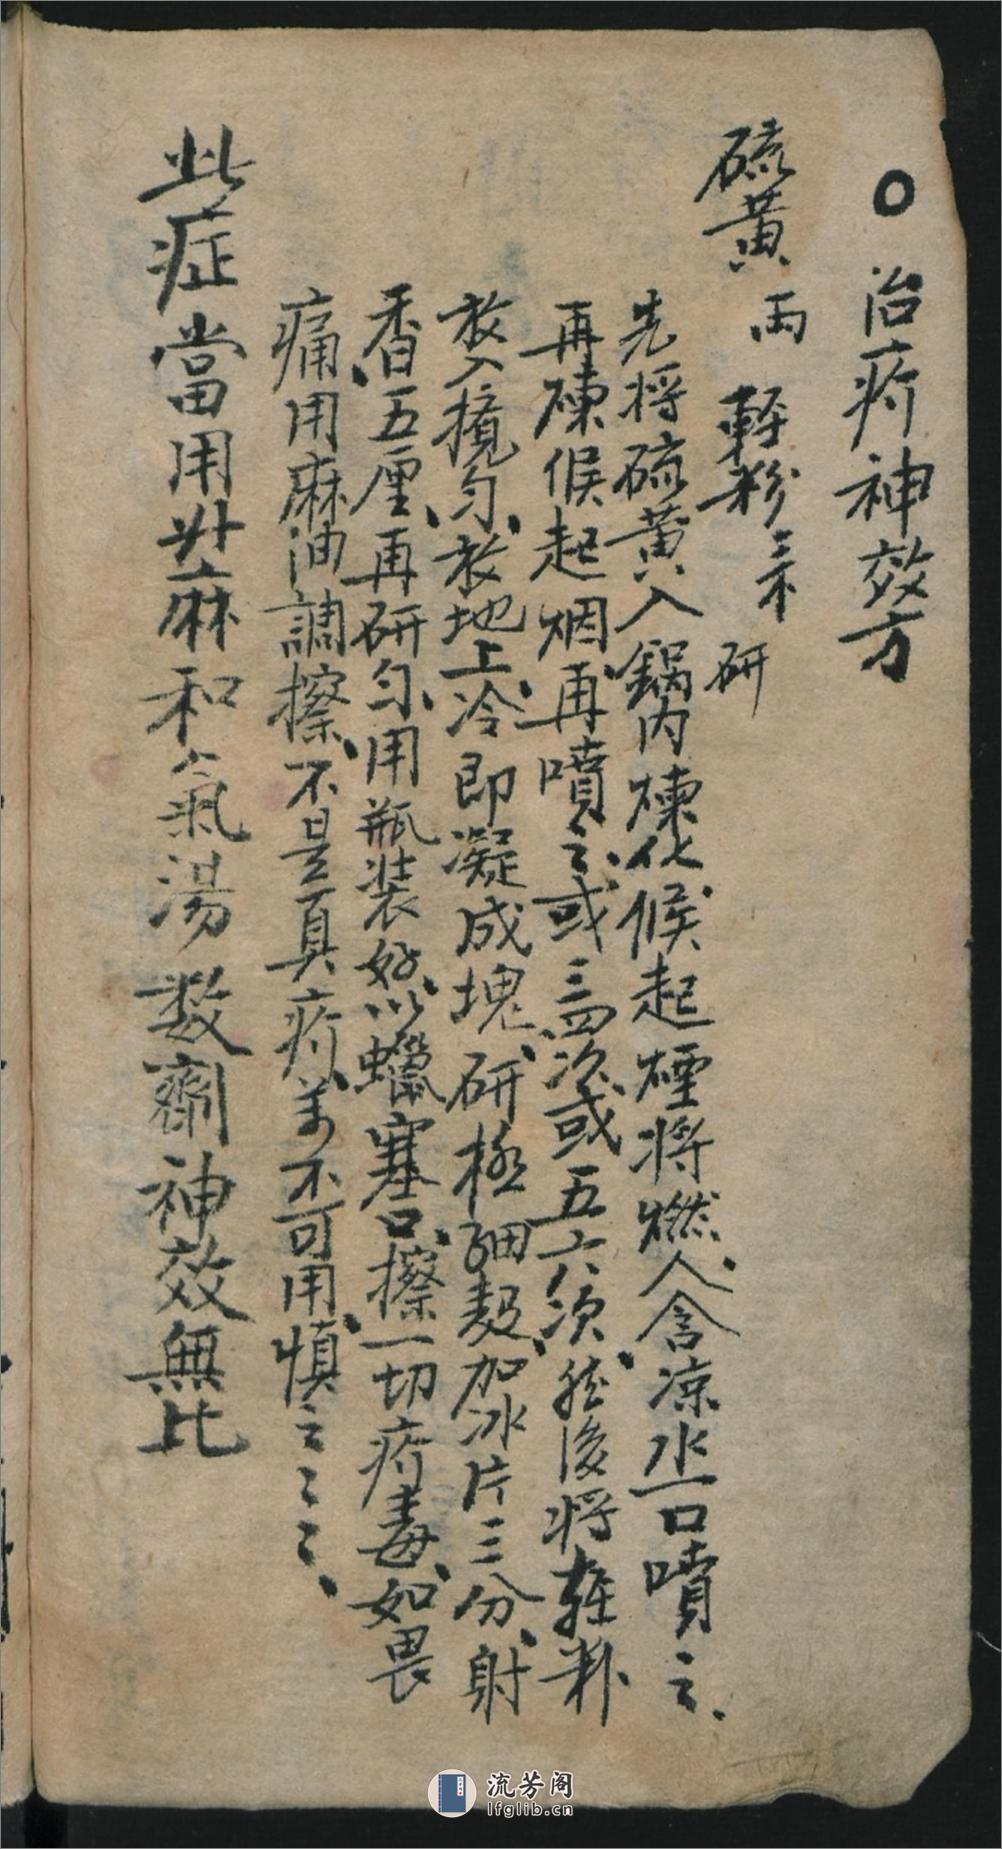 ○治疥神效方
硫黄 両 輕粉 三禾 研
先将硫黄入鍋内煉化候起煙将燃人含凉水一口噴之
再煉候起烟再噴之或三四次或五六次然後将
放入攪匀放地上冷即凝成塊研極細麩加冰片三分射
香五厘再研匀用瓶装好以蠟塞口擦一切疥毒如畏
痛用麻油調擦不是真疥万不可用慎之之之
此症當用麻和氣湯数劑神效無比
流芳阁
lfglib.cn